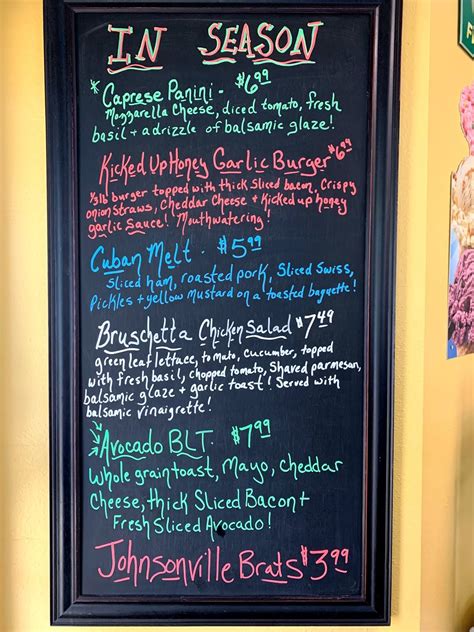 IN SEASON
* Caprese Panini - $6.99
Mozzarella Cheese, diced tomato, fresh
basil + a drizzle of balsamic glaze!
Kicked Up Honey Garlic Burger $6.99
1/3 lb burger topped with thick sliced bacon, Crispy
onion straws, Cheddar Cheese + Kicked up honey
garlic Sauce! Mouthwatering!
Cuban Melt - $5.99
Sliced ham, roasted pork, Sliced Swiss,
Pickles + yellow Mustard on a toasted baguette!
Bruschetta Chicken Salad $7.49
green leaf lettuce, tomato, cucumber, topped
with fresh basil, chopped tomato, Shaved parmesan,
balsamic glaze + garlic toast! Served with
balsamic vinaigrette!
Avocado BLT. $7.99
Whole grain toast, Mayo, Cheddar
Cheese, thick Sliced Bacon +
Fresh Sliced Avocado!
Johnsonville Brats $3.99